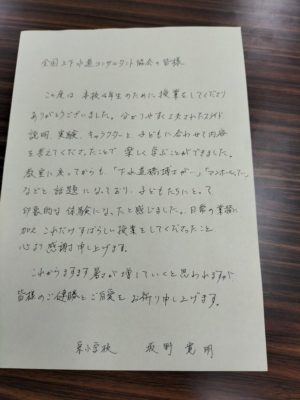 全国上下水道コンサルタント協会の皆様
この度は本校4年生のために授業をしてくださり
ありがとうございました。分かりやすく工夫されたスライド
説明、実験、キャラクターと、子どもに合わせて内容
を考えてくださったことで楽しく学ぶことができました。
教室に戻ってからも、「下水道橋博士が…」「マンホールって…」
などと話題になっており、子どもたちにとって
印象的な体験になったと感じました。日常の業務に
加え、これだけすばらしい授業をしてくださったこと
心より感謝申し上げます。
これからますます暑さが増していくと思われますが
皆様のご健勝とご自愛をお祈り申し上げます。
小学校 坂野 寛明